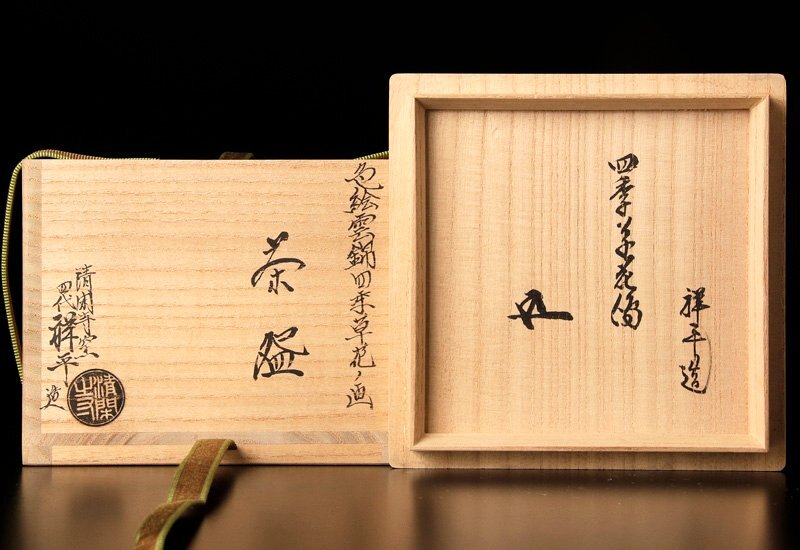 色絵雲錦四季草花ノ画
茶盌
清閑寺窯
四代祥平造
清閑
祥平造
四季草花